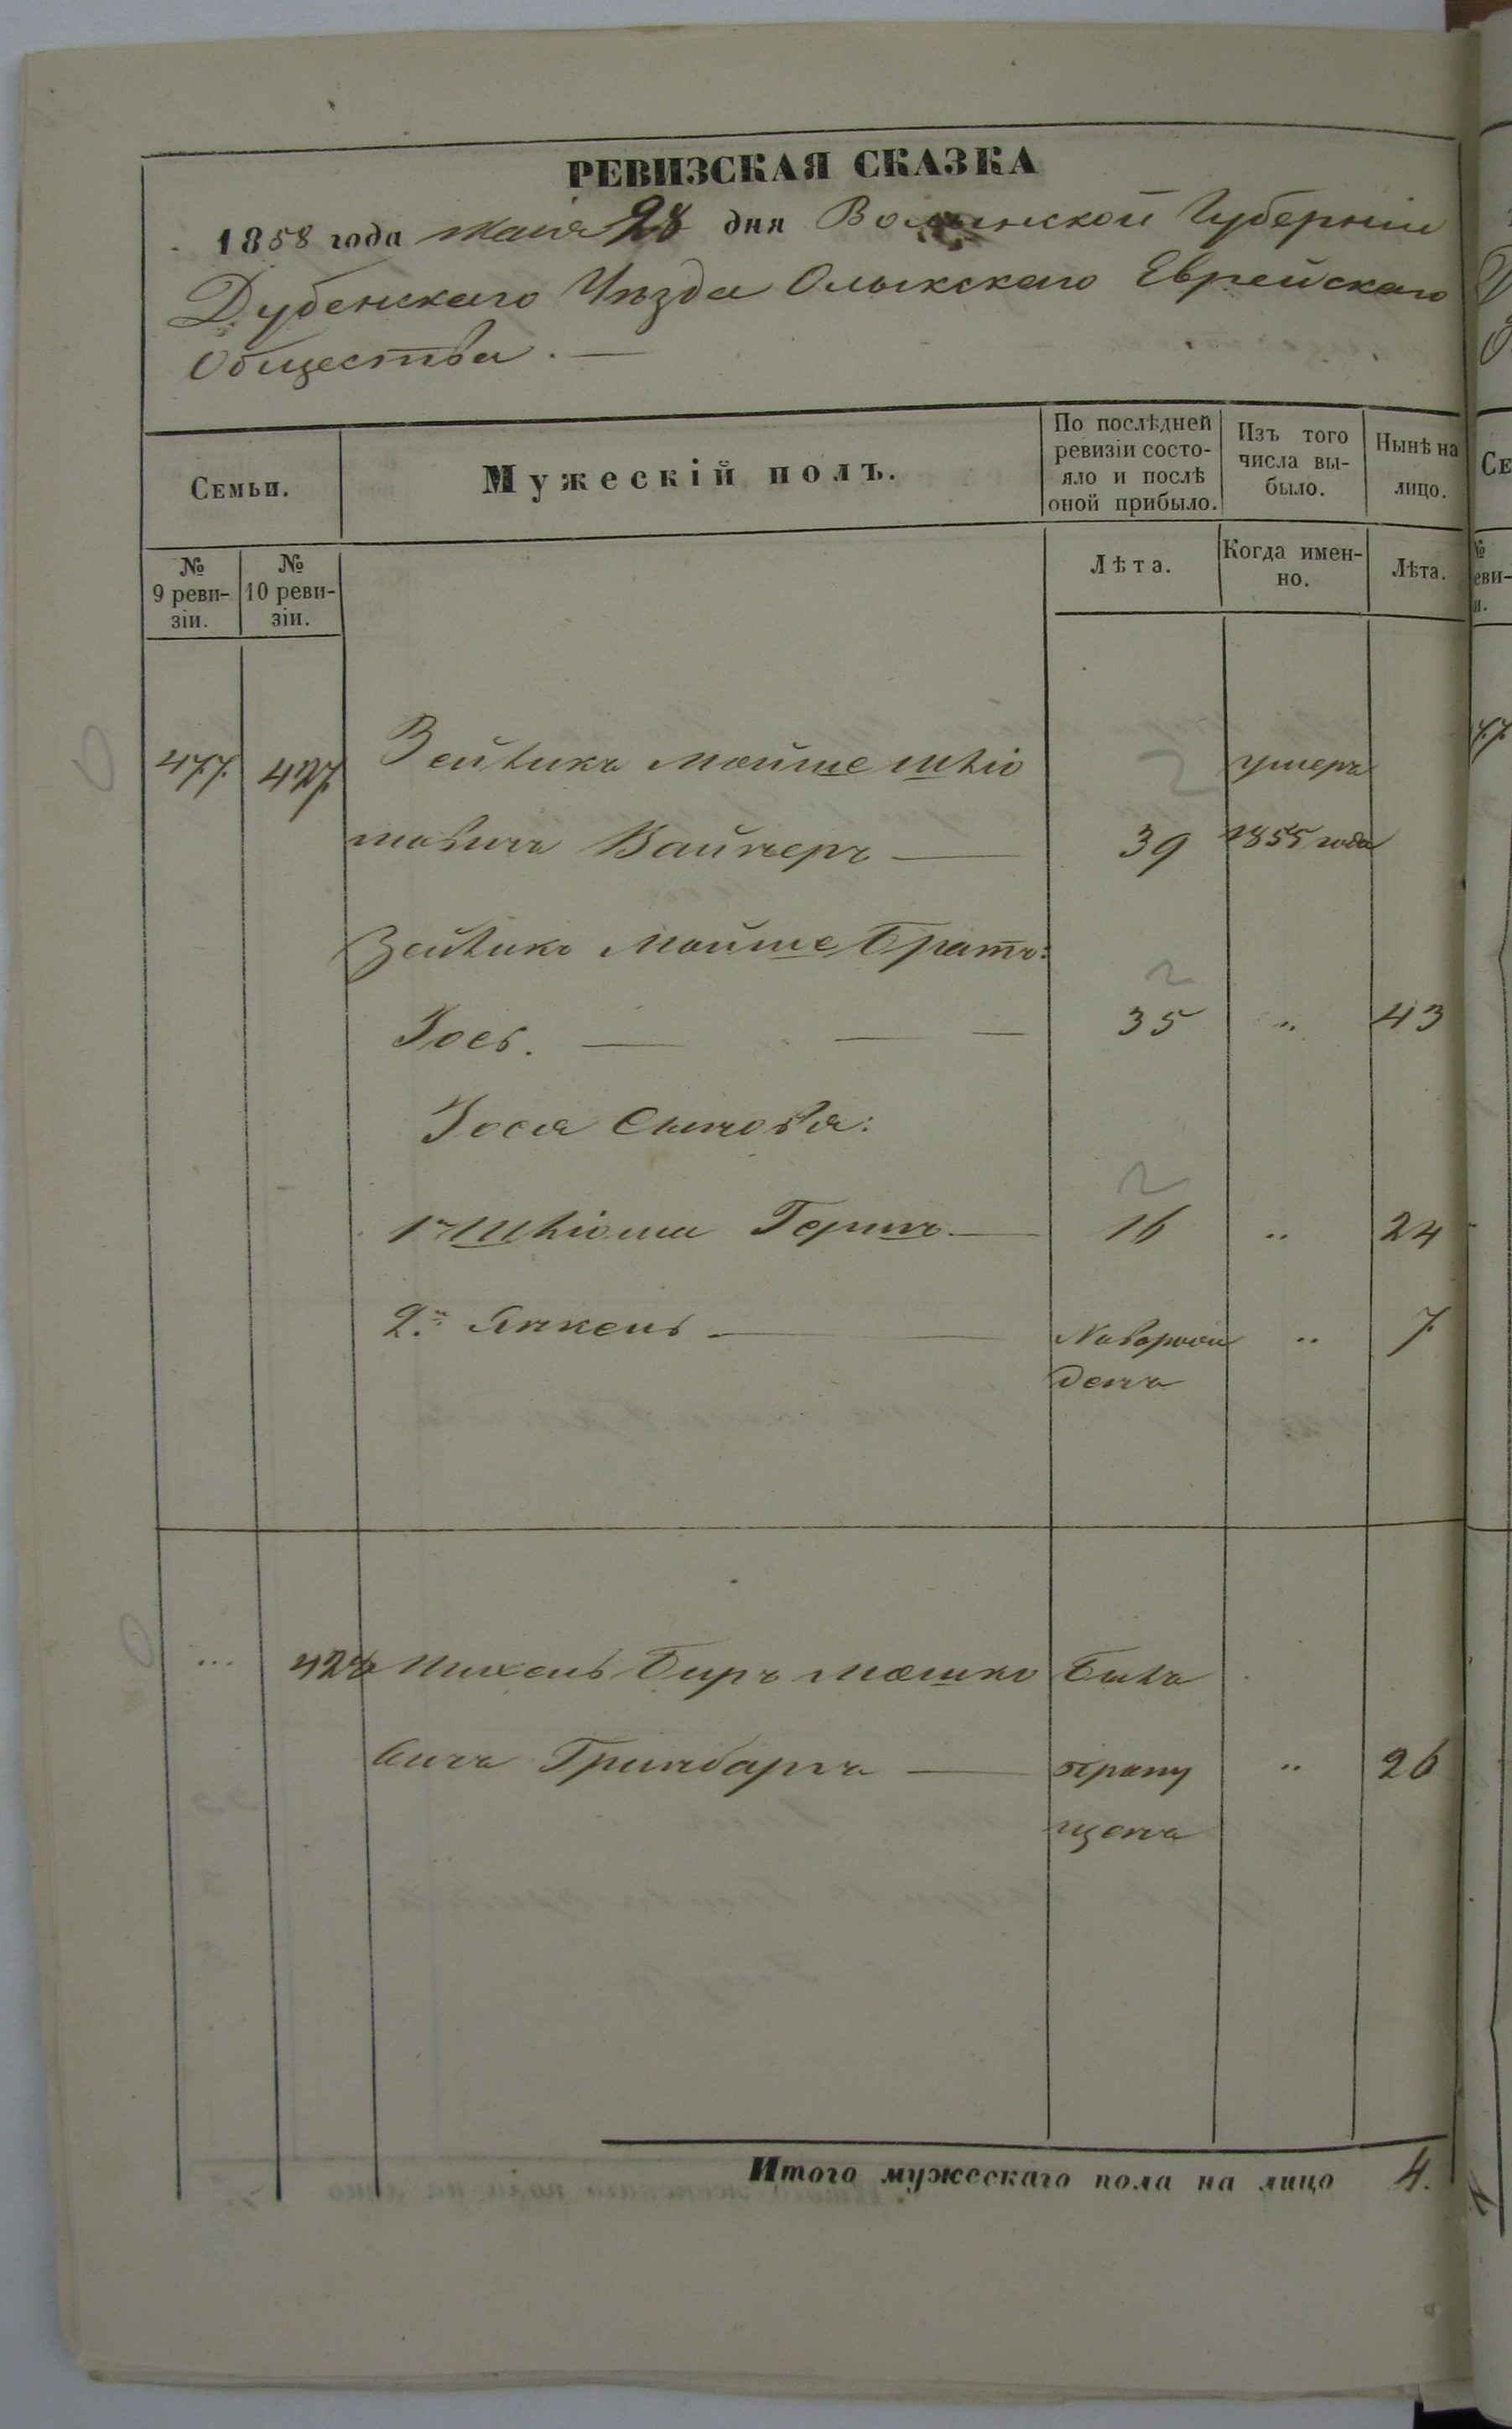 РЕВИЗСКАЯ СКАЗКА
1858 года маія 28 дня Волынской Губерніи
Дубенскаго Уѣзда Олыкскаго Еврейскаго
Общества.
Семьи.
Мужескій полъ.
По послѣдней ревизіи состо-
яло и послѣ
оной прибыло.
Изъ того
числа вы-
было.
Нынѣ на
лицо.
№
9 реви-
зіи.
№
10 реви-
зіи.
Лѣта.
Когда имен-
но.
Лѣта.
477 427 Зейликъ Мойше Шліо умеръ
мовичъ Вайнеръ 39 1855 года
Зейлика Мойше братъ:
Іось. 35 „ 43
Іося Сыновья:
1й Шліома Гершъ 16 „ 24
2й Янкель Новорож „ 7
денъ
... 428 Михель Беръ Мошко былъ
вичъ Гринбаргъ пропу „ 26
щенъ
Итого мужескаго пола на лицо 4.